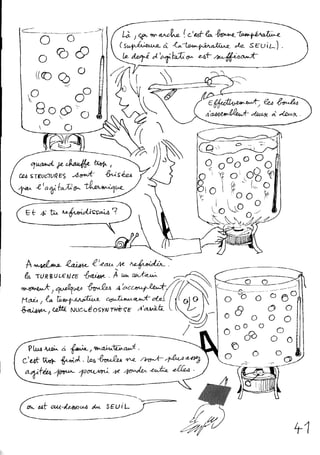 Là, ça marche ! c'est la bonne température
(supérieure à la température de SEUIL).
Le degré d'agitation est suffisant
Effectivement, les boules
s'assemblent deux à deux
quand je chauffe trop,
ces STRUCTURES sont brisées
par l'agitation thermique
Et si tu refroidissais ?
Anselme laisse l'eau se refroidir.
la TURBULENCE baisse. À un certain
moment, quelques boules s'accouplent.
Mais, la température continuant de
baisser, cette NUCLÉOSYNTHÈSE s'arrête
Plus rien à faire, maintenant.
C'est trop froid. Les boules ne sont plus assez
agitées pour pouvoir se souder entre elles.
on est au-dessous du SEUIL
A
41